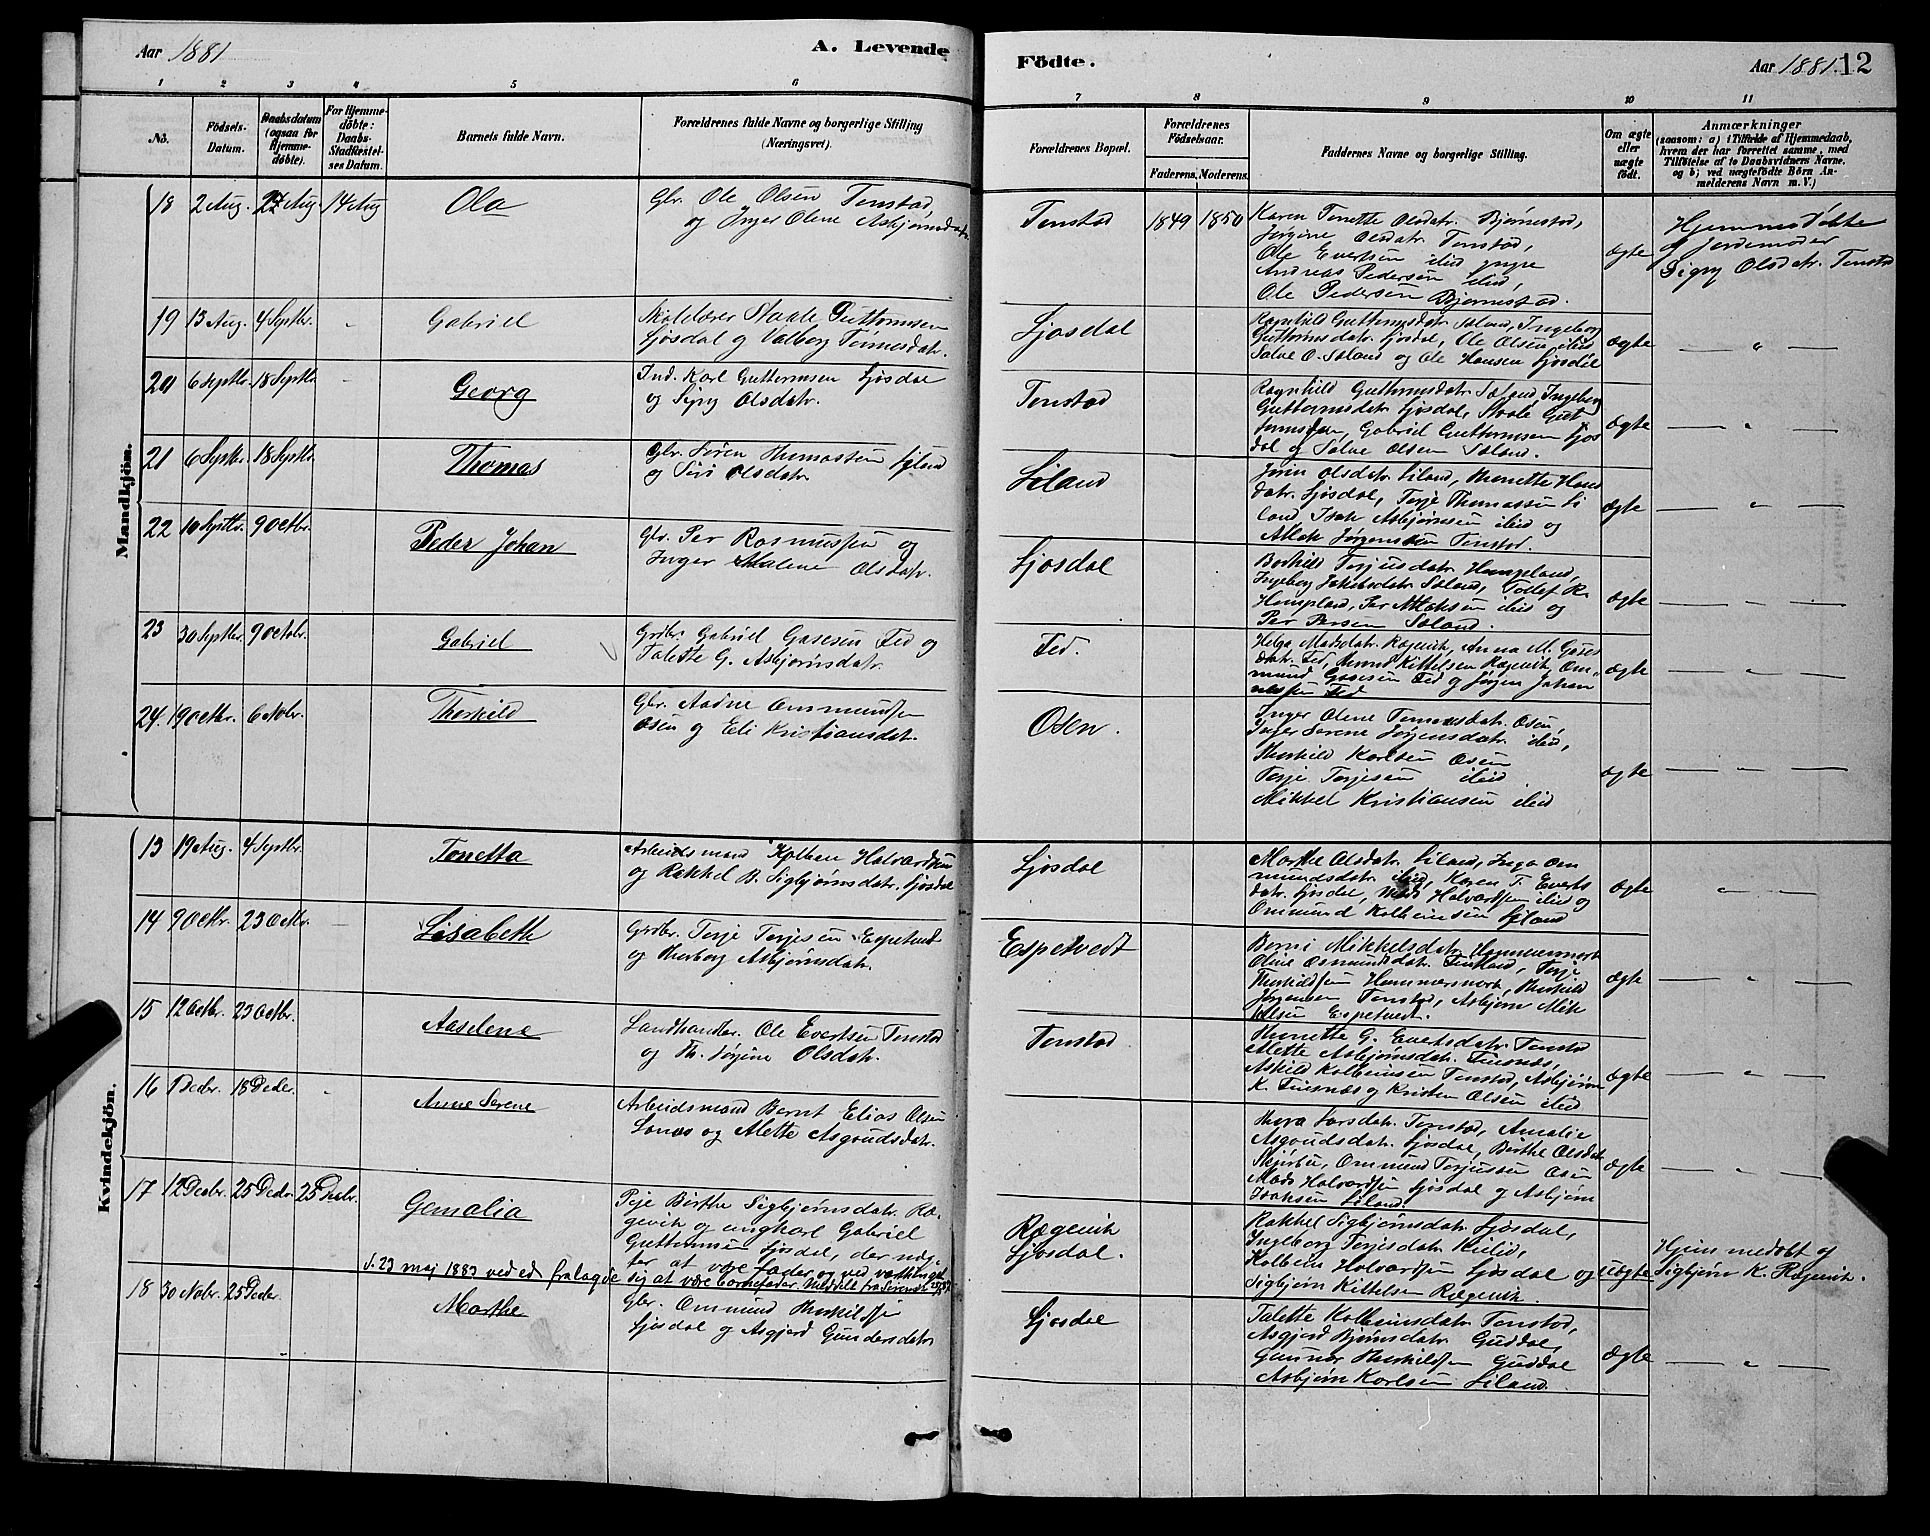 Aar 1881
A. Levende
Födte.
Aar 1881. 12
1 2 3 4 5 6 7 8 9 10 11
No.
Födsels-
Datum.
Daabsdatum
(ogsaa for
Hjemme-
döbte).
For Hjemme-
döbte:
Daabs-
Stadfæstel-
ses Datum.
Barnets fulde Navn.
Forældrenes fulde Navne og borgerlige Stilling
(Næringsvei).
Forældrenes Bopæl.
Forældrenes
Födselsaar.
Faderens. Moderens.
Faddernes Navne og borgerlige Stilling.
Om ægte
eller
uægte
födt.
Anmærkninger
(saasom: a) i Tilfælde af Hjemmedaab,
hvem der har forrettet samme, med
Tilföielse af to Daabsvidners Navne,
og b) ved uægtefödte Börn An-
melderens Navn m. V.)
Mandkjön.
18 2 Aug. 27 Aug 14 Aug Ola
Gbr. Ole Olsen Tonstad
og Inger Olene Asbjørnsdatr
Tonstad 1849 1850
Karen Tonette Olsdatr. Bjørnestad,
Jørgine Olsdatr. Tonstad,
Ole Evertsen ibid yngre
Andreas Pedersen ibid,
Ole Pedersen Bjørnestad.
ægte
Hjemmedöbte
af Jordemoder
Sigry Olsdatr. Tonstad
19 13 Aug. 4 Septbr. - Gabriel
Skolelærer Staale Guttormsen
Sjosdal og Valborg Tønnesdatr.
Ljosdal
Ragnhild Guttormsdatr. Saland, Ingeborg
Guttormsdatr. Ljosdal, Ole Olsen ibid
Salve O. Saland og Ole Hansen Ljosdal
ægte — " —
20 6 Septbr 18 Septbr - Georg
Ind. Karl Guttormsen Ljosdal
og Sigry Olsdatr.
Tonstad
Ragnhild Guttormsdatr. Saland, Ingeborg
Guttormsdatr Ljosdal, Staale Gut
tormsen, Gabriel Guttormsen Ljos
dal og Salve Olsen Saland.
ægte — " —
21 6 Septbr. 18 Septbr. Thomas
Gbr. Søren Thomassen Liland
og Siri Olsdatr
Liland
Jorin Olsdatr. Liland, Thonette Hans
datr. Ljosdal, Terje Thomassen Li
land Isak Asbjørnsen ibid og
Atlak Jørgensen Tonstad.
ægte — " —
22 10 Septbr. 9 Octbr. Peder Johan
Gbr. Per Rasmussen og
Inger Malene Olsdatr.
Ljosdal
Borhild Terjusdatr Hompland,
Ingeborg Jakobsdatr Saland, Tollef R.
Hompland, Per Atlaksen ibid og
Per Persen Saland.
ægte — " —
23 30 Septbr. 9 Octbr. Gabriel
Grdbr. Gabriel Gasesen Fed og
Talette G. Asbjørnsdatr.
Fed.
Helga Madsdatr. Rægevik, Anna M. Gases
datr. Fed, Amund Kittelsen Rægevik, Om-
mund Gasesen Fed og Jørgen Johan
nessen Fed
ægte — " —
24. 19 Octbr. 6 Novbr. Thorkild
Gbr. Aadne Ommundsen
Osen og Eli Kristiansdatr.
Osen.
Inger Olene Tonnesdatr. Osen,
Inger Serene Jørgensdatr ibid,
Thorkild Karlsen Osen
Terje Terjesen ibid
Mikkel Kristiansen ibid
ægte — " —
Kvindekjön.
13 19 Aug. 4 Septbr. Tonetta
Arbeidsmand Kolben Halvardsen
og Rakkel B. Sigbjørnsdatr. Ljosdal
Ljosdal
Marthe Olsdatr. Liland, Inga Om
mundsdatr ibid, Karen T. Everts
datr. Ljosdal, Mads Halvardsen ibid og
Ommund Kolbeinsen Liland
ægte — " —
14 9 Octbr. 23 Octbr. — Lisabeth
Grdbr. Terje Terjesen Espetvedt
og Thorborg Asbjørnsdatr.
Espetvedt
Berni Mikkelsdatr. Hammersmark
Oline Osmundsdatr. Finsland, Terje
Thorkildsen Hammersmark, Thorkild
Jørgensen Tonstad, Asbjørn Mik
kelsen Espetvedt.
ægte — " —
15 12 Octbr. 23 Octbr. Aaselene
Landhandler. Ole Evertsen Tonstad
og Th. Jørgine Olsdatr.
Tonstad
Thonette G. Evertsdatr. Tonstad
Alette Asbjørnsdatr. Finsnæs,
Askild Kolbeinsen Tonstad, Asbjørn
K. Finsnæs og Kristen Olsen ibid
ægte — " —
16 1 Decbr. 18 Decbr. - Anne Serene
Arbeidsmand Bernt Elias Olsen
Lonas og Alette Asgoudsdatr.
Thora Larsdatr. Tonstad, Amalie
Asgoudsdatr. Ljosdal, Birthe Olsdatr
Skjerbu, Ommund Terjussen Osen
Mads Halvardsen Ljosdal og Asbjørn
Isaksen Liland.
ægte — " —
17 12 Decbr. 25 Decbr. 25 Decbr. Gemalia
Pige Birthe Sigbjørnsdatr. Ræ
gevik og ungkarl Gabriel
Guttormsen Ljosdal, der næg
ter at være fader og ved værthinget
d. 23 maj 1883 ved ed fralagde sig at være barnefader. Meddelt fra Sirendal
Rægevik
Ljosdal.
Rakkel Sigbjørnsdatr. Ljosdal,
Ingeborg Terjesdatr. ibid,
Kolbein Halvardsen Ljosdal og
Sigbjørn Kittelsen Rægevik.
uægte
Hjemmedøbt af
Sigbjørn K. Rægevik.
18 30 Novbr. 25 Decbr. Marthe
Gbr. Ommund Thorkildsen
Ljosdal og Asgjerd Gundersdatr
Ljosdal
Talette Kolbeinsdatr Tonstad,
Asgjerd Bjørnsdatr. Guddal,
Gunnar Thorkildsen Guddal
Asbjørn Karlsen Liland.
ægte — " —